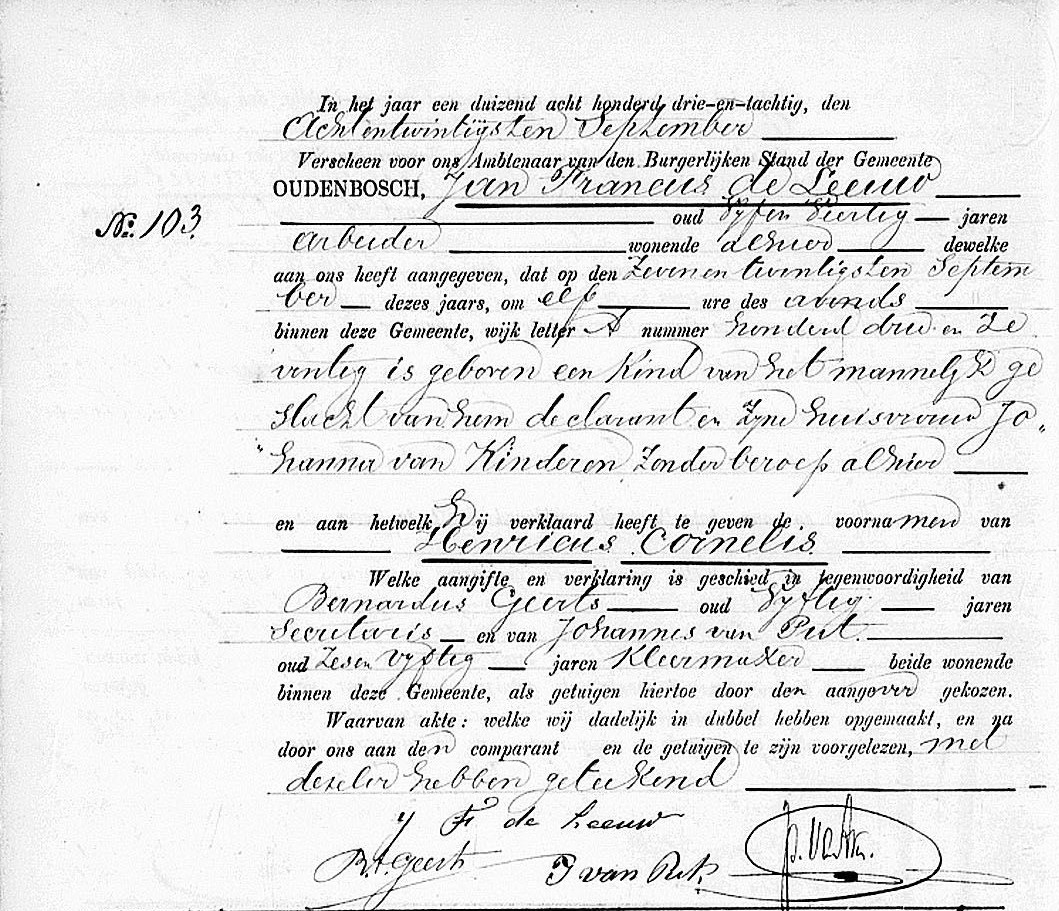 In het jaar een duizend acht honderd drie-en-tachtig, den
Achtentwintigsten September
Verscheen voor ons Ambtenaar van den Burgerlijken Stand der Gemeente
OUDENBOSCH, Jan Francus de Leeuw
No. 103.
oud Vyfen Veertig jaren
arbeider wonende alhier dewelke
aan ons heeft aangegeven, dat op den Zevenentwintigsten Septem
ber dezes jaars, om elf ure des avonds
binnen deze Gemeente, wijk letter A nummer honderd drie en Ze
ventig is geboren een Kind van het mannelyk ge
slacht van hem declarant en Zyne huisvrouw Jo„
„hanna van Kinderen Zonder beroep alhier
en aan hetwelk Hij verklaard heeft te geven de voornamen van
Henricus Cornelis
Welke aangifte en verklaring is geschied in tegenwoordigheid van
Bernardus Geerts oud Vyftig jaren
Secretaris en van Johannes van Put.
oud Zesen Vyftig jaren Kleermaker beide wonende
binnen deze Gemeente, als getuigen hiertoe door den aangever gekozen.
Waarvan akte: welke wij dadelijk in dubbel hebben opgemaakt, en na
door ons aan den comparant en de getuigen te zijn voorgelezen, met
dezelve hebben geteekend
J F de Leeuw
Geerts J van Put